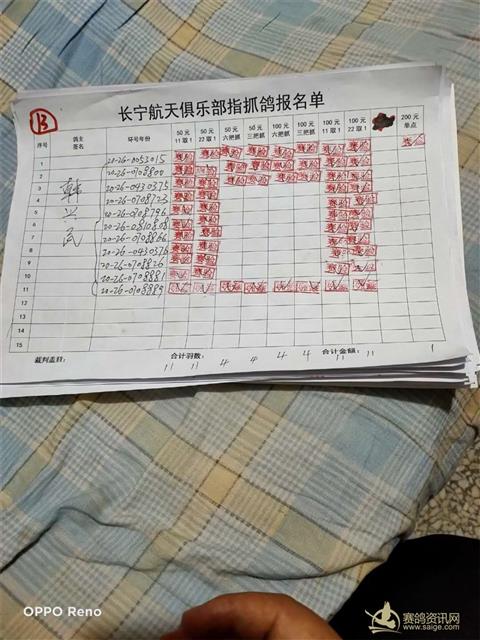 13
长宁航天俱乐部指抓鸽报名单
序号 鸽主签名 环号年份 50元11取1 50元22取1 50元六把抓 50元三把抓 100元六把抓 100元三把抓 100元11取1 100元22取1 200元单点
韩兴民
1 20-26-0053015
2 20-26-0708800
3 20-26-0430375
4 20-26-0708723
5 20-26-0708796
6 20-26-0810808
7 20-26-0708866
8 20-26-0430376
9 20-26-0708826
10 20-26-0708881
11 20-26-0708889
12
13
14
15
裁判盖目: 合计羽数: 合计金额:
11 11 4 4 4 4 11 11 1
OPPO Reno
赛鸽资讯网
www.saige.com